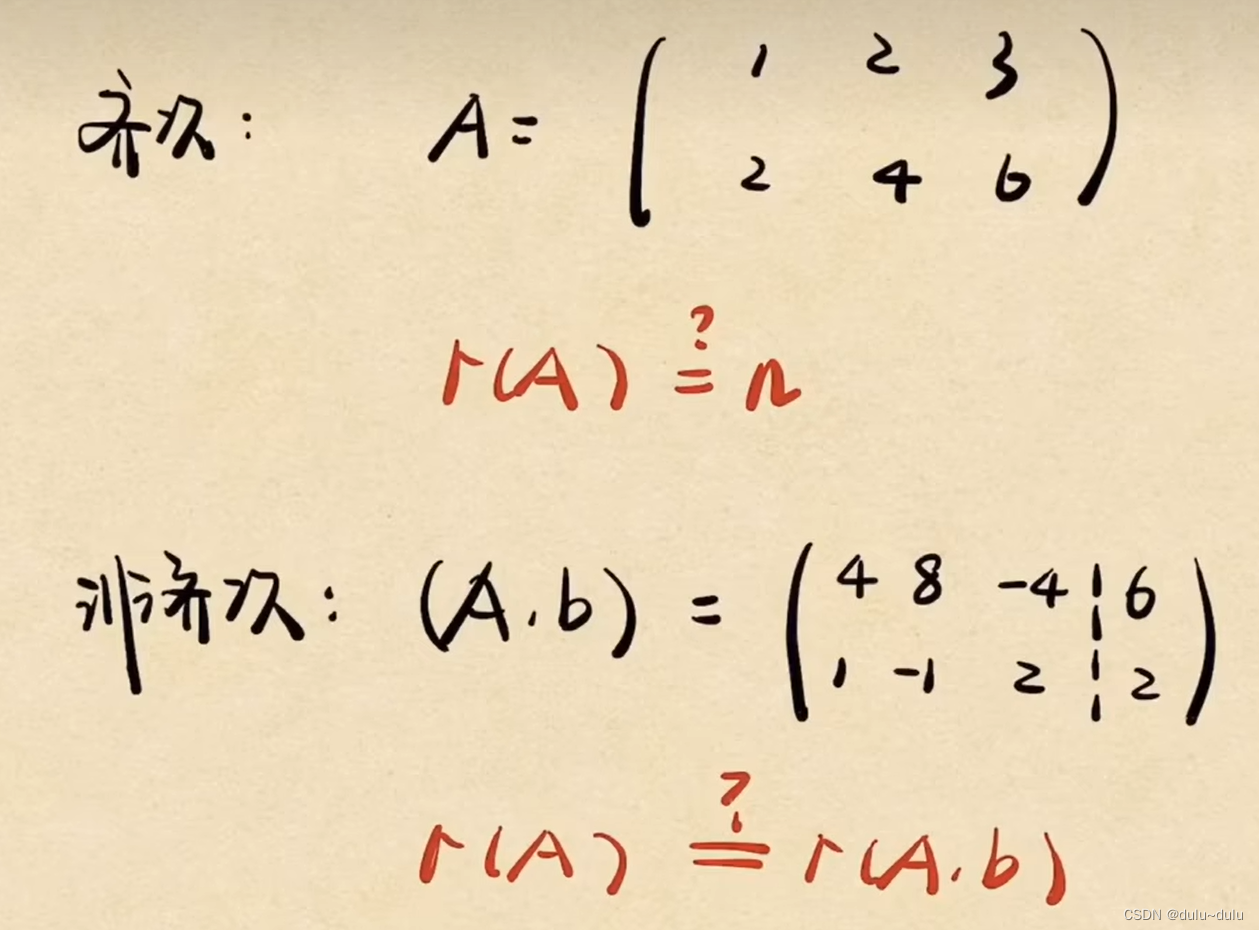 齐次： A = ( 1 2 3
2 4 6 )
r(A) ≟ n
非齐次： (A.b) = ( 4 8 -4 ¦ 6
1 -1 2 ¦ 2 )
r(A) ≟ r(A.b)
CSDN @dulu~dulu